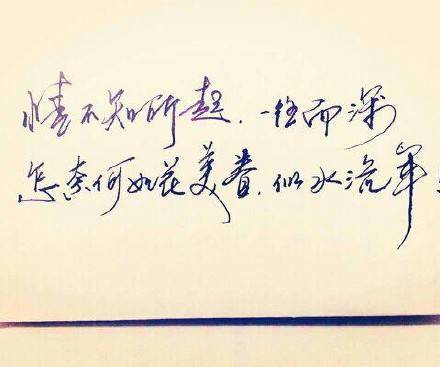 情不知所起.一往而深
怎奈何如花美眷.似水流年